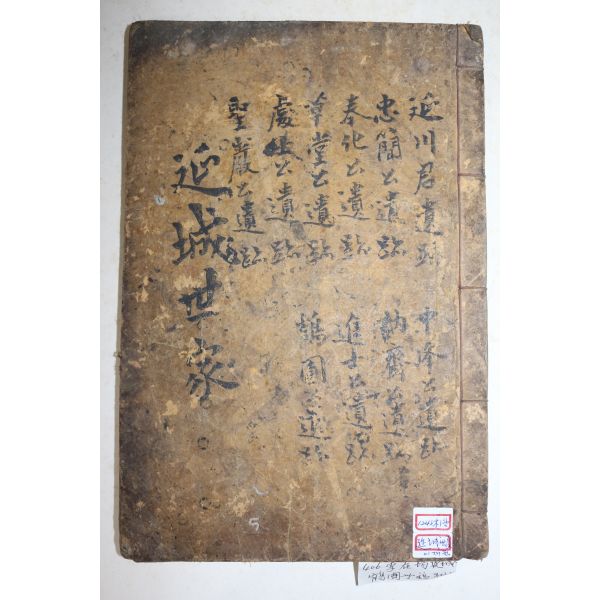 延川君遺跡
忠簡公遺跡
奉化公遺跡
草堂公遺跡
處士公遺跡
聖巖公遺跡
中峰公遺跡
訥齋公遺跡
進士公遺跡
圃公遺跡
延城世家
5